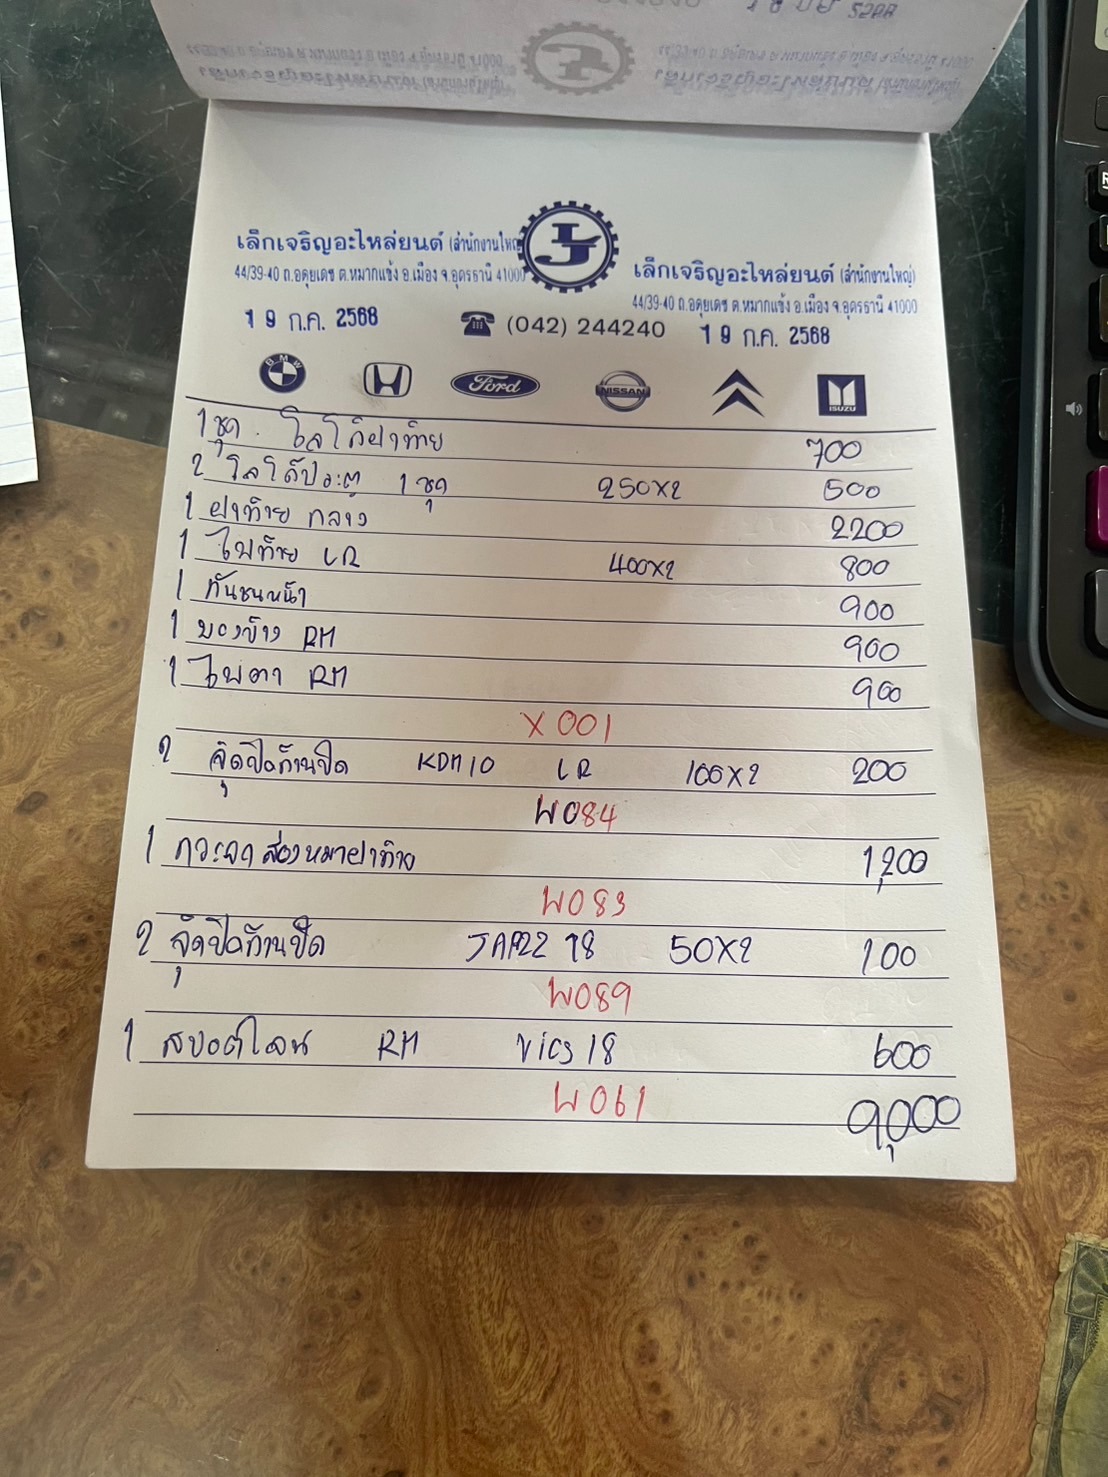 เล็กเจริญอะไหล่ยนต์ (สำนักงานใหญ่
44/39-40 ถ.อดุยเดช ต.หมากแข้ง อ.เมือง จ.อุดรธานี 41000
เล็กเจริญอะไหล่ยนต์ (สำนักงานใหญ่)
44/39-40 ถ.อดุยเดช ต.หมากแข้ง อ.เมือง จ.อุดรธานี 41000
19 ก.ค. 2568
(042) 244240
19 ก.ค. 2568
BMW
Ford
NISSAN
ISUZU
1 ชุด โลโก้ฝาท้าย 700
2 โลโก้ประตู 1 ชุด 250x2 500
1 ฝาท้าย กลาง 2200
1 ไฟท้าย LR 400x2 800
1 กันชนหน้า 900
1 มองข้าง RH 900
1 ไฟตา RH 900
X001
2 จุ๊ดปิดก้านปัด KDH10 LR 100x2 200
W084
1 กระจกส่องหมาฝาท้าย 1,200
W083
2 จุ๊ดปิดก้านปัด JAP22 18 50x2 100
W089
1 สปอตไลน์ RH Vics 18 600
W061
9,000